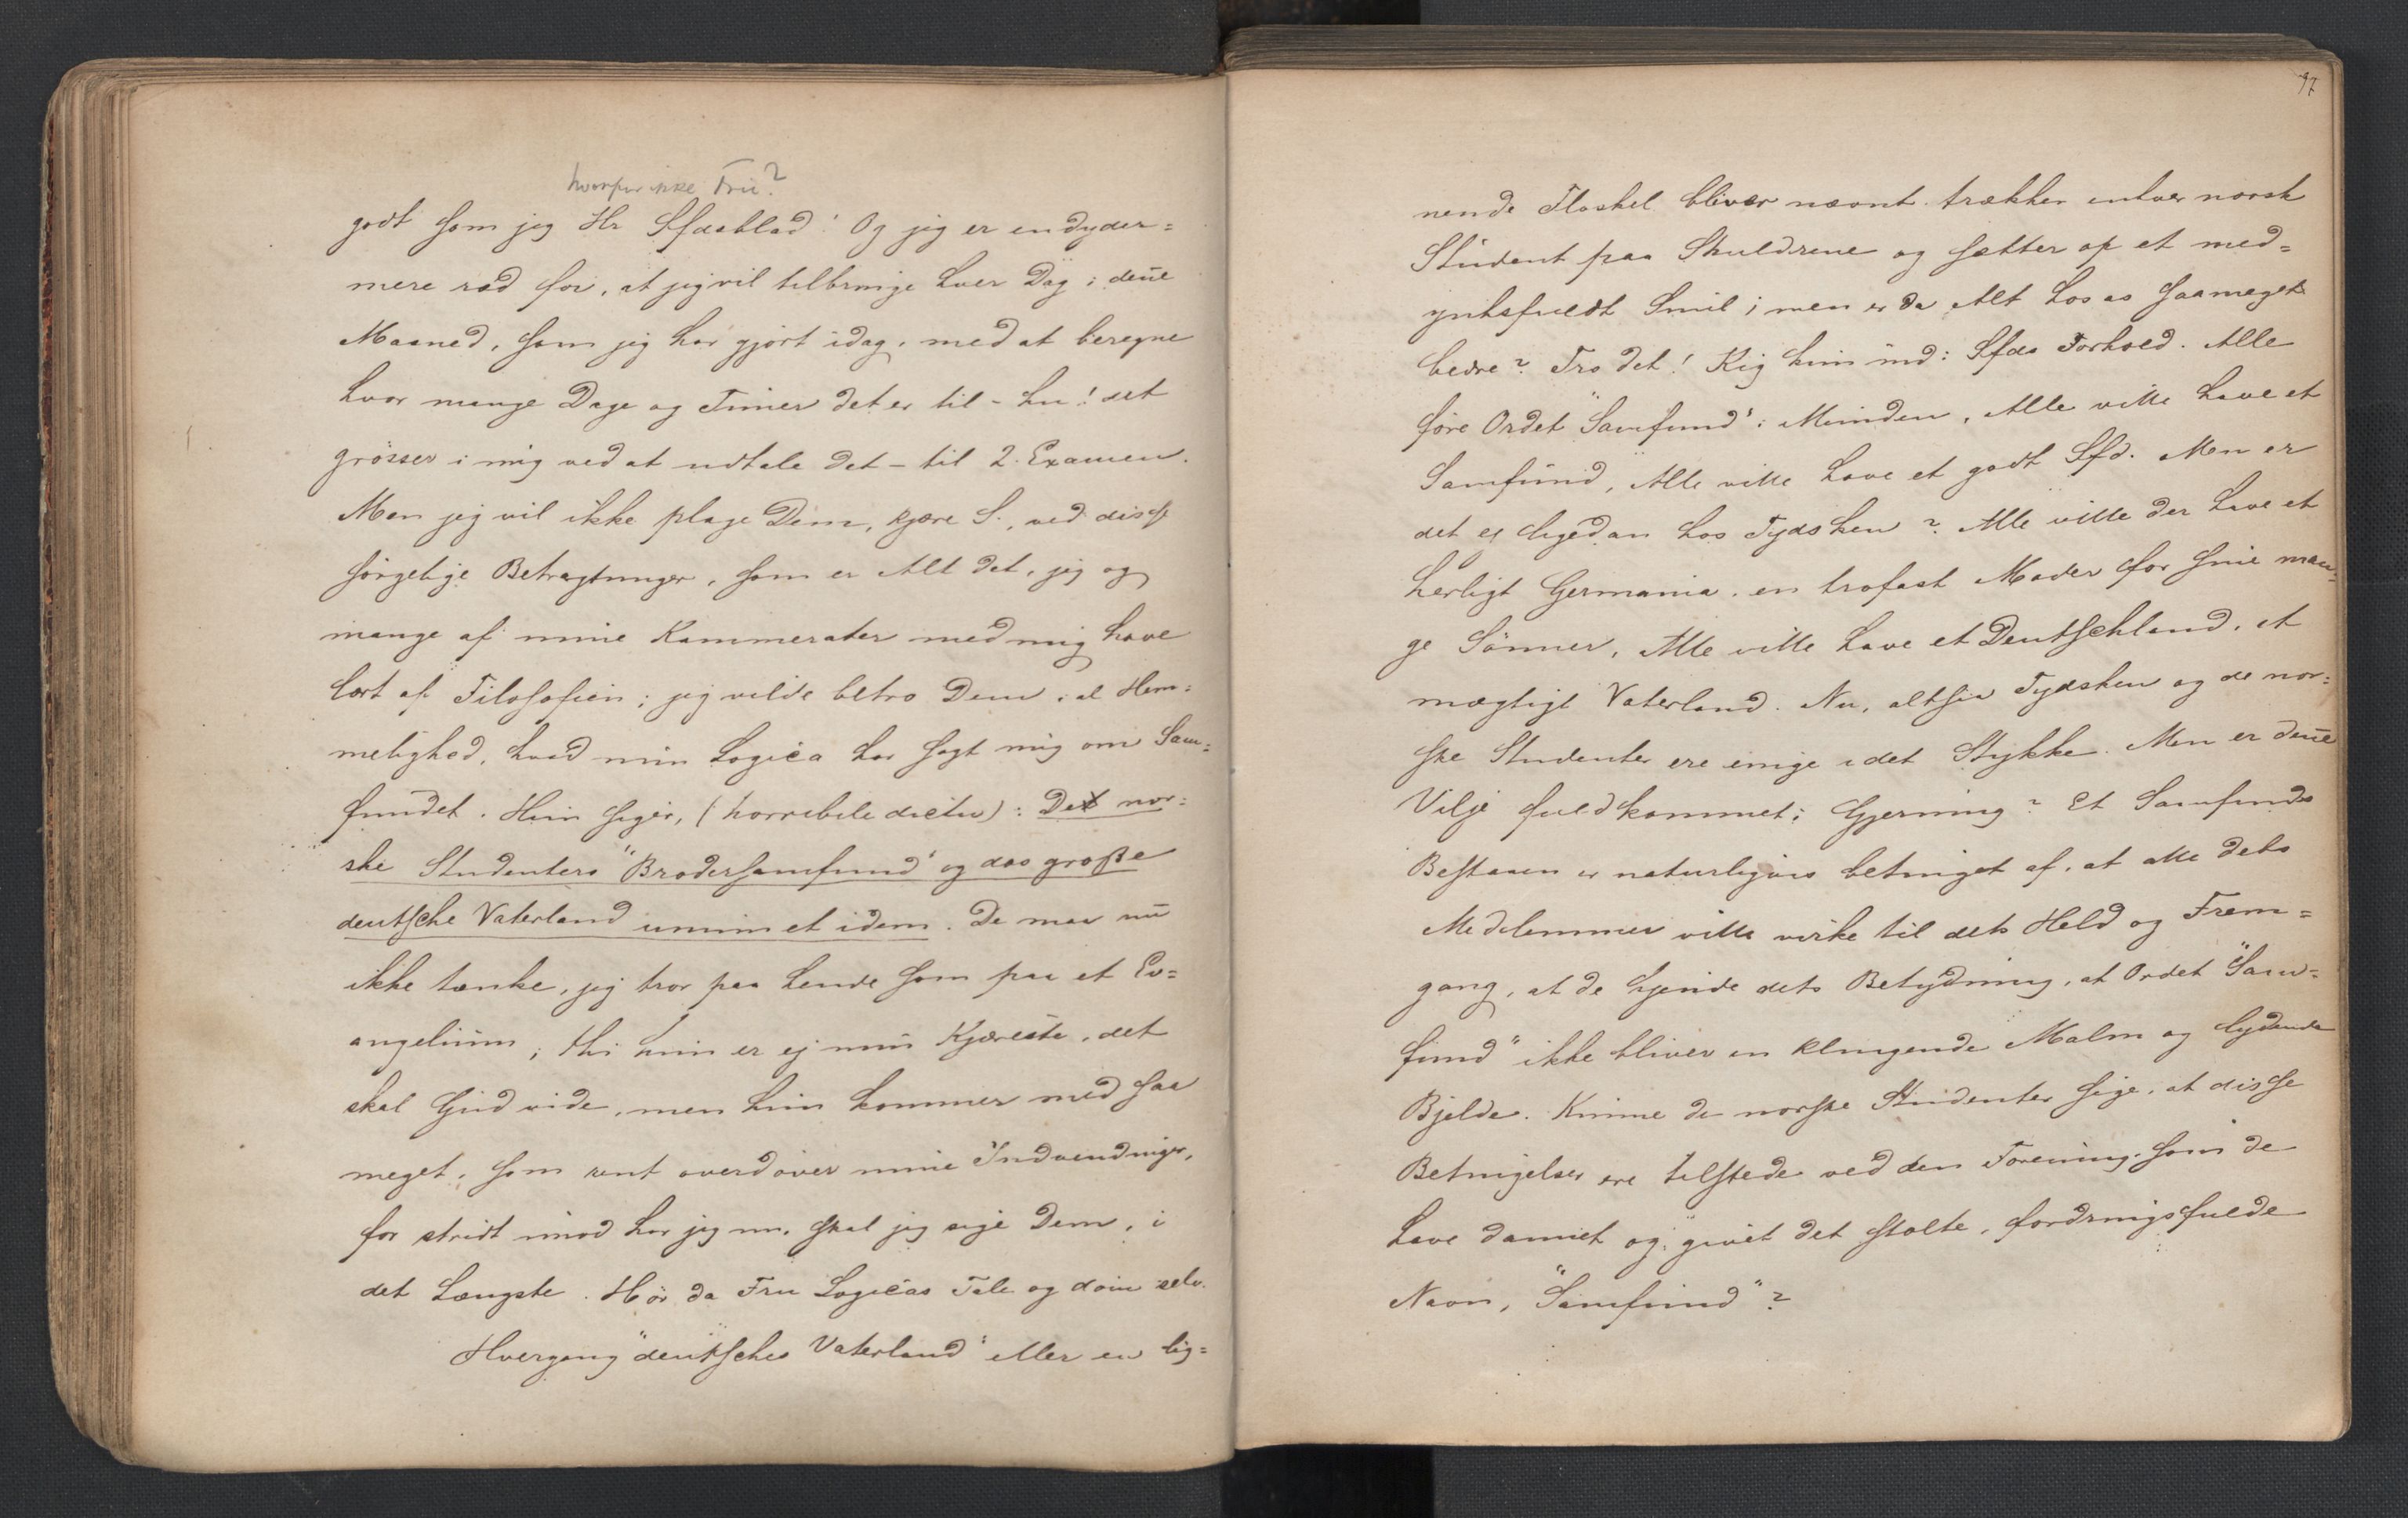 hvorfor ikke Frue?
godt som jeg Hr Sfdsblad! Og jeg er en dyder=
mere ræd for, at jeg vil tilbringe hver Dag i deñe
Maaned, som jeg har gjort idag, med at beregne
hvor mange Dage og Timer det er til - hu! det
grösser i mig ved at udtale det - til 2. Examen.
Men jeg vil ikke plage Dem, kjære S., ved disse
sørgelige Betragtninger, som er Alt det, jeg og
mange af mine Kammerater med mig have
lært af Filosofien; jeg vilde betro Dem i al Hem=
melighed, hvad min Logica har sagt mig om Sam=
fundet. Hun siger, (horribile dictu): Det nor=
ske Studenters "Brodersamfund" og das große
deutsche Vaterland unum et idem. De maa nu
ikke tænke, jeg tror paa hende som paa et Ev=
angelium; thi hun er ej min Kjæreste, det
skal Gud vide, men hun kommer med saa
meget, som rent overdöver mine Indvendinger,
for stridt imod har jeg nu, skal jeg sige Dem, i
det Længste. Hör da Fru Logicas Tale og döm selv.
Hvergang "deutsches Vaterland" eller en lig=
97
nende Floskel bliver nævnt trækker enhver norsk
Student paa Skuldrene og sætter op et med=
ynksfuldt Smil; men er da Alt hos os saameget
bedre? Tro det! Kig kun ind i Sfds Forhold. Alle
före Ordet "Samfund" i Munden, Alle ville have et
Samfund, Alle ville have et godt Sfd. Men er
det ej ligedan hos Tydsken? Alle ville der have et
herligt Germania, en trofast Moder for sine man=
ge Sönner, Alle ville have et Deutschland, et
mægtigt Vaterland. Nu, altsaa Tydsken og de nor=
ske Studenter ere enige i det Stykke. Men er deñe
Vilje fuldkommet i Gjerning? Et Samfunds
Bestaaen er naturligvis betinget af, at alle dets
Medlemmer ville virke til dets Held og Frem=
gang, at de kjende dets Betydning, at Ordet "Sam=
fund" ikke bliver en klingende Malm og lydende
Bjelde. Kunne de norske Studenter sige, at disse
Betingelser ere tilstede ved den Forening, som de
have dannet og givet det stolte, fordringsfulde
Navn, "Samfund"?